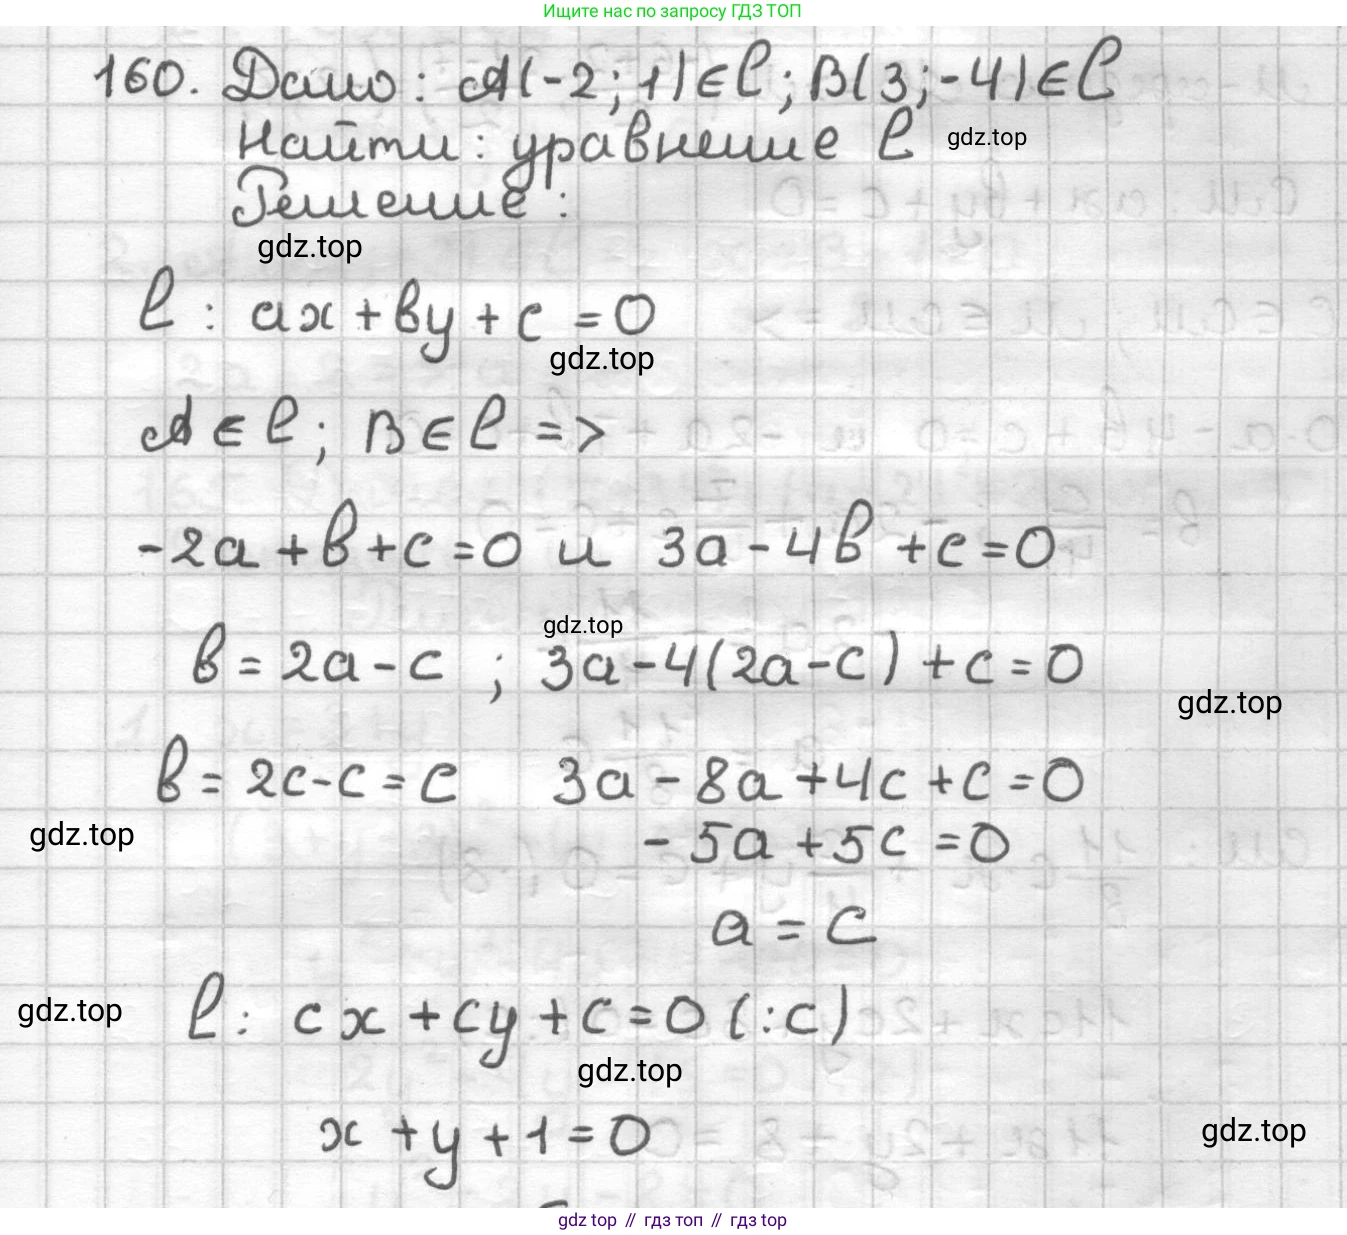 Ищите нас по запросу ГДЗ ТОП
160. Дано: A(-2; 1) ∈ l; B(3; -4) ∈ l
Найти: уравнение l
gdz.top
Решение:
gdz.top
l: ax + by + c = 0
gdz.top
A ∈ l; B ∈ l =>
-2a + b + c = 0 и 3a - 4b + c = 0
gdz.top
b = 2a - c ; 3a - 4(2a - c) + c = 0
gdz.top
b = 2c - c = c 3a - 8a + 4c + c = 0
gdz.top
-5a + 5c = 0
a = c
gdz.top
l: cx + cy + c = 0 (:c)
gdz.top
x + y + 1 = 0
gdz.top
gdz top // гдз топ // gdz top